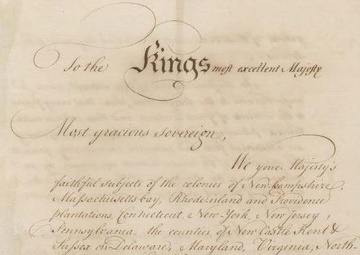 To the Kings most excellent Majesty
Most gracious Sovereign,
We your Majesty's
faithful subjects of the colonies of Newhampshire,
Massachusetts-bay, Rhode-island and Providence
plantations, Connecticut, New-York, New Jersey,
Pennsylvania, the counties of New Castle Kent &
Sussex on Delaware, Maryland, Virginia, North-